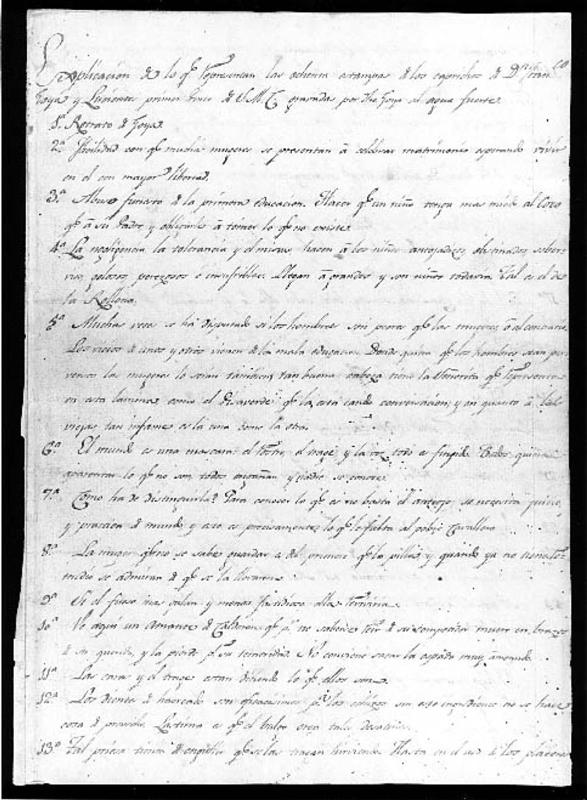 Explicacion de lo q.e representan las ochenta estampas de los caprichos de D.n Fran.co
Goya y Lucientes primer Pintor de S.M.C. gravadas por Goya al agua fuerte.
1.a Retrato de Goya.
2.a facilidad con q.e muchas mugeres se prestan á celebrar matrimonio esperando vivir
en el con mayor libertad.
3.a Abuso funesto de la primera educacion. Hacer q.e un niño tenga mas miedo al Coco
q.e á su Padre y obligarle á temer lo q.e no existe.
4.a La negligencia la tolerancia y el mimo hacen á los niños antojadizos obstinados sober-
vios golosos perezosos é insufribles. Llegan á grandes y son niños todavia. Tal es el de
la Rollona.
5.a Muchas veces se ha disputado si los hombres son peores q.e las mugeres ó al contrario.
Los vicios de unos y otros vienen de la mala educacion. Donde quiera q.e los hombres sean per-
versos las mugeres lo seran tambien. tan buena cabeza tiene la Señorita q.e se representa
en esta lamina como el Pisaverde q.e la está dando conversacion; y en quanto á las
viejas, tan infame es la una como la otra.
6.a El mundo es una mascara: el rostro, el trage y la voz todo es fingido. Todos quieren
aparentar lo q.e no son todos engañan y nadie se conoce.
7.a Como ha de distinguirla? Para conocer lo q.e es no basta el anteojo, se necesita juicio
y practica de mundo y esto es precisamente lo q.e le falta al pobre Cavallero
8.a La muger q.e no se sabe guardar es del primero q.e la pilla; y quando ya no tiene re-
medio se admiran de q.e se la llevaron.
9.a Si el fuese mas galan y menos fastidioso ella
10.a Ve aqui un Amante de Calderon q.e p.r no saberse reir de su competidor muere en brazos
de su querida, y la pierde p.r su temeridad. No conviene sacar la espada muy á menudo.
11.a Las caras y el trage estan diciendo lo q.e ellos son.
12.a Los dientes de ahorcado son eficacisimos p.a los echizos; sin este ingrediente no se hace
cosa de provecho. Lastima es q.e el bulgo crea tales desatinos.
13.a Tal priesa tienen de engullir q.e se las tragan hirviendo. Hasta en el uso de los placeres